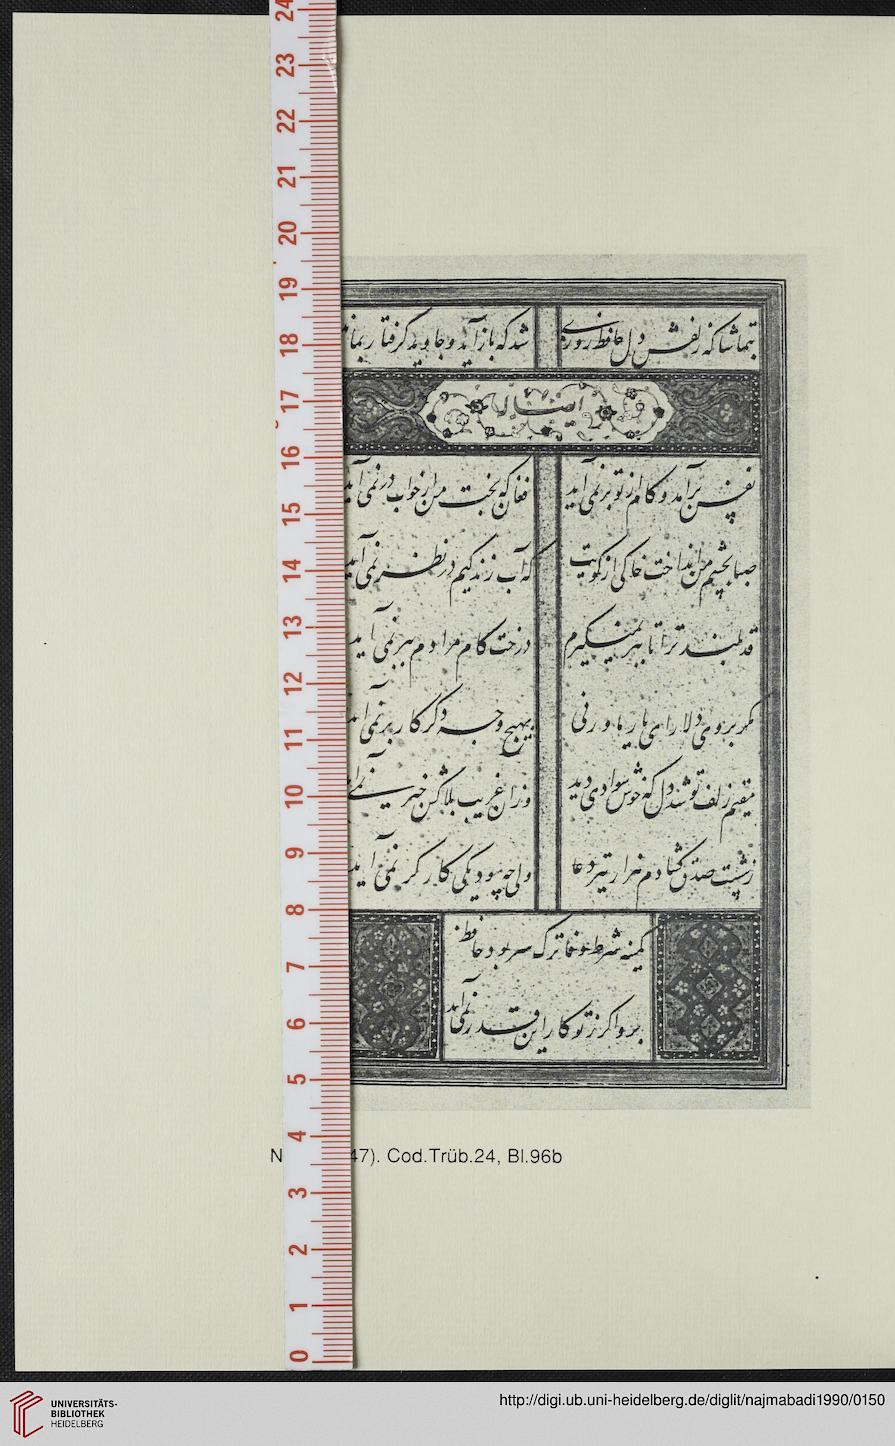 بتماشاکه زلفش دل حافظ روزی
شد که بازآید و جاوید گرفتار بماند
ایضاله
نفس برآمد و کام از تو برنمی آید
فغان که بخت من از خواب درنمی آید
صبا بچشم من انداخت خاکی از کویت
که آب زندگیم در نظر نمی آید
قد بلند ترا تا ببر نمیگیرم
درخت کام مرادم ببر نمی آید
مکر بروی دلارای یار ما ورنی
بهیچ وجه دکر کار برنمی آید
مقیم زلف تو شد دل که خوش سوادی دید
وزان غریب بلاکش خبر نمی آید
ز شست صدق کشادم هزار تیر دعا
ولی چه سود یکی کارکر نمی آید
کمینه شرط وفا ترک سر بود حافظ
برو اکر ز تو کار این قدر نمی آید
24
23
22
21
20
19
18
17
16
15
14
13
12
11
10
9
8
7
6
5
4
3
2
1
0
N 47). Cod.Trüb.24, Bl.96b
UNIVERSITÄTS-
BIBLIOTHEK
HEIDELBERG
http://digi.ub.uni-heidelberg.de/diglit/najmabadi1990/0150